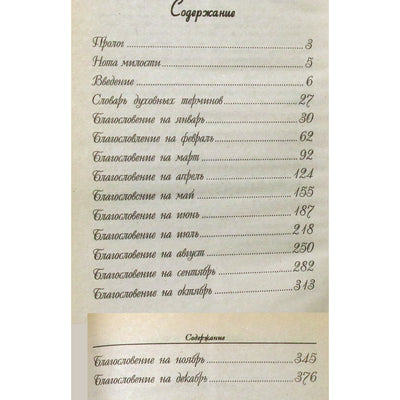 Содержание
Пролог 3
Нота милости 5
Введение 6
Словарь духовных терминов 27
Благословение на январь 30
Благословление на февраль 62
Благословение на март 92
Благословение на апрель 124
Благословение на май 155
Благословение на июнь 187
Благословение на июль 218
Благословение на август 250
Благословение на сентябрь 282
Благословение на октябрь 313
Содержание
Благословение на ноябрь 345
Благословение на декабрь 376